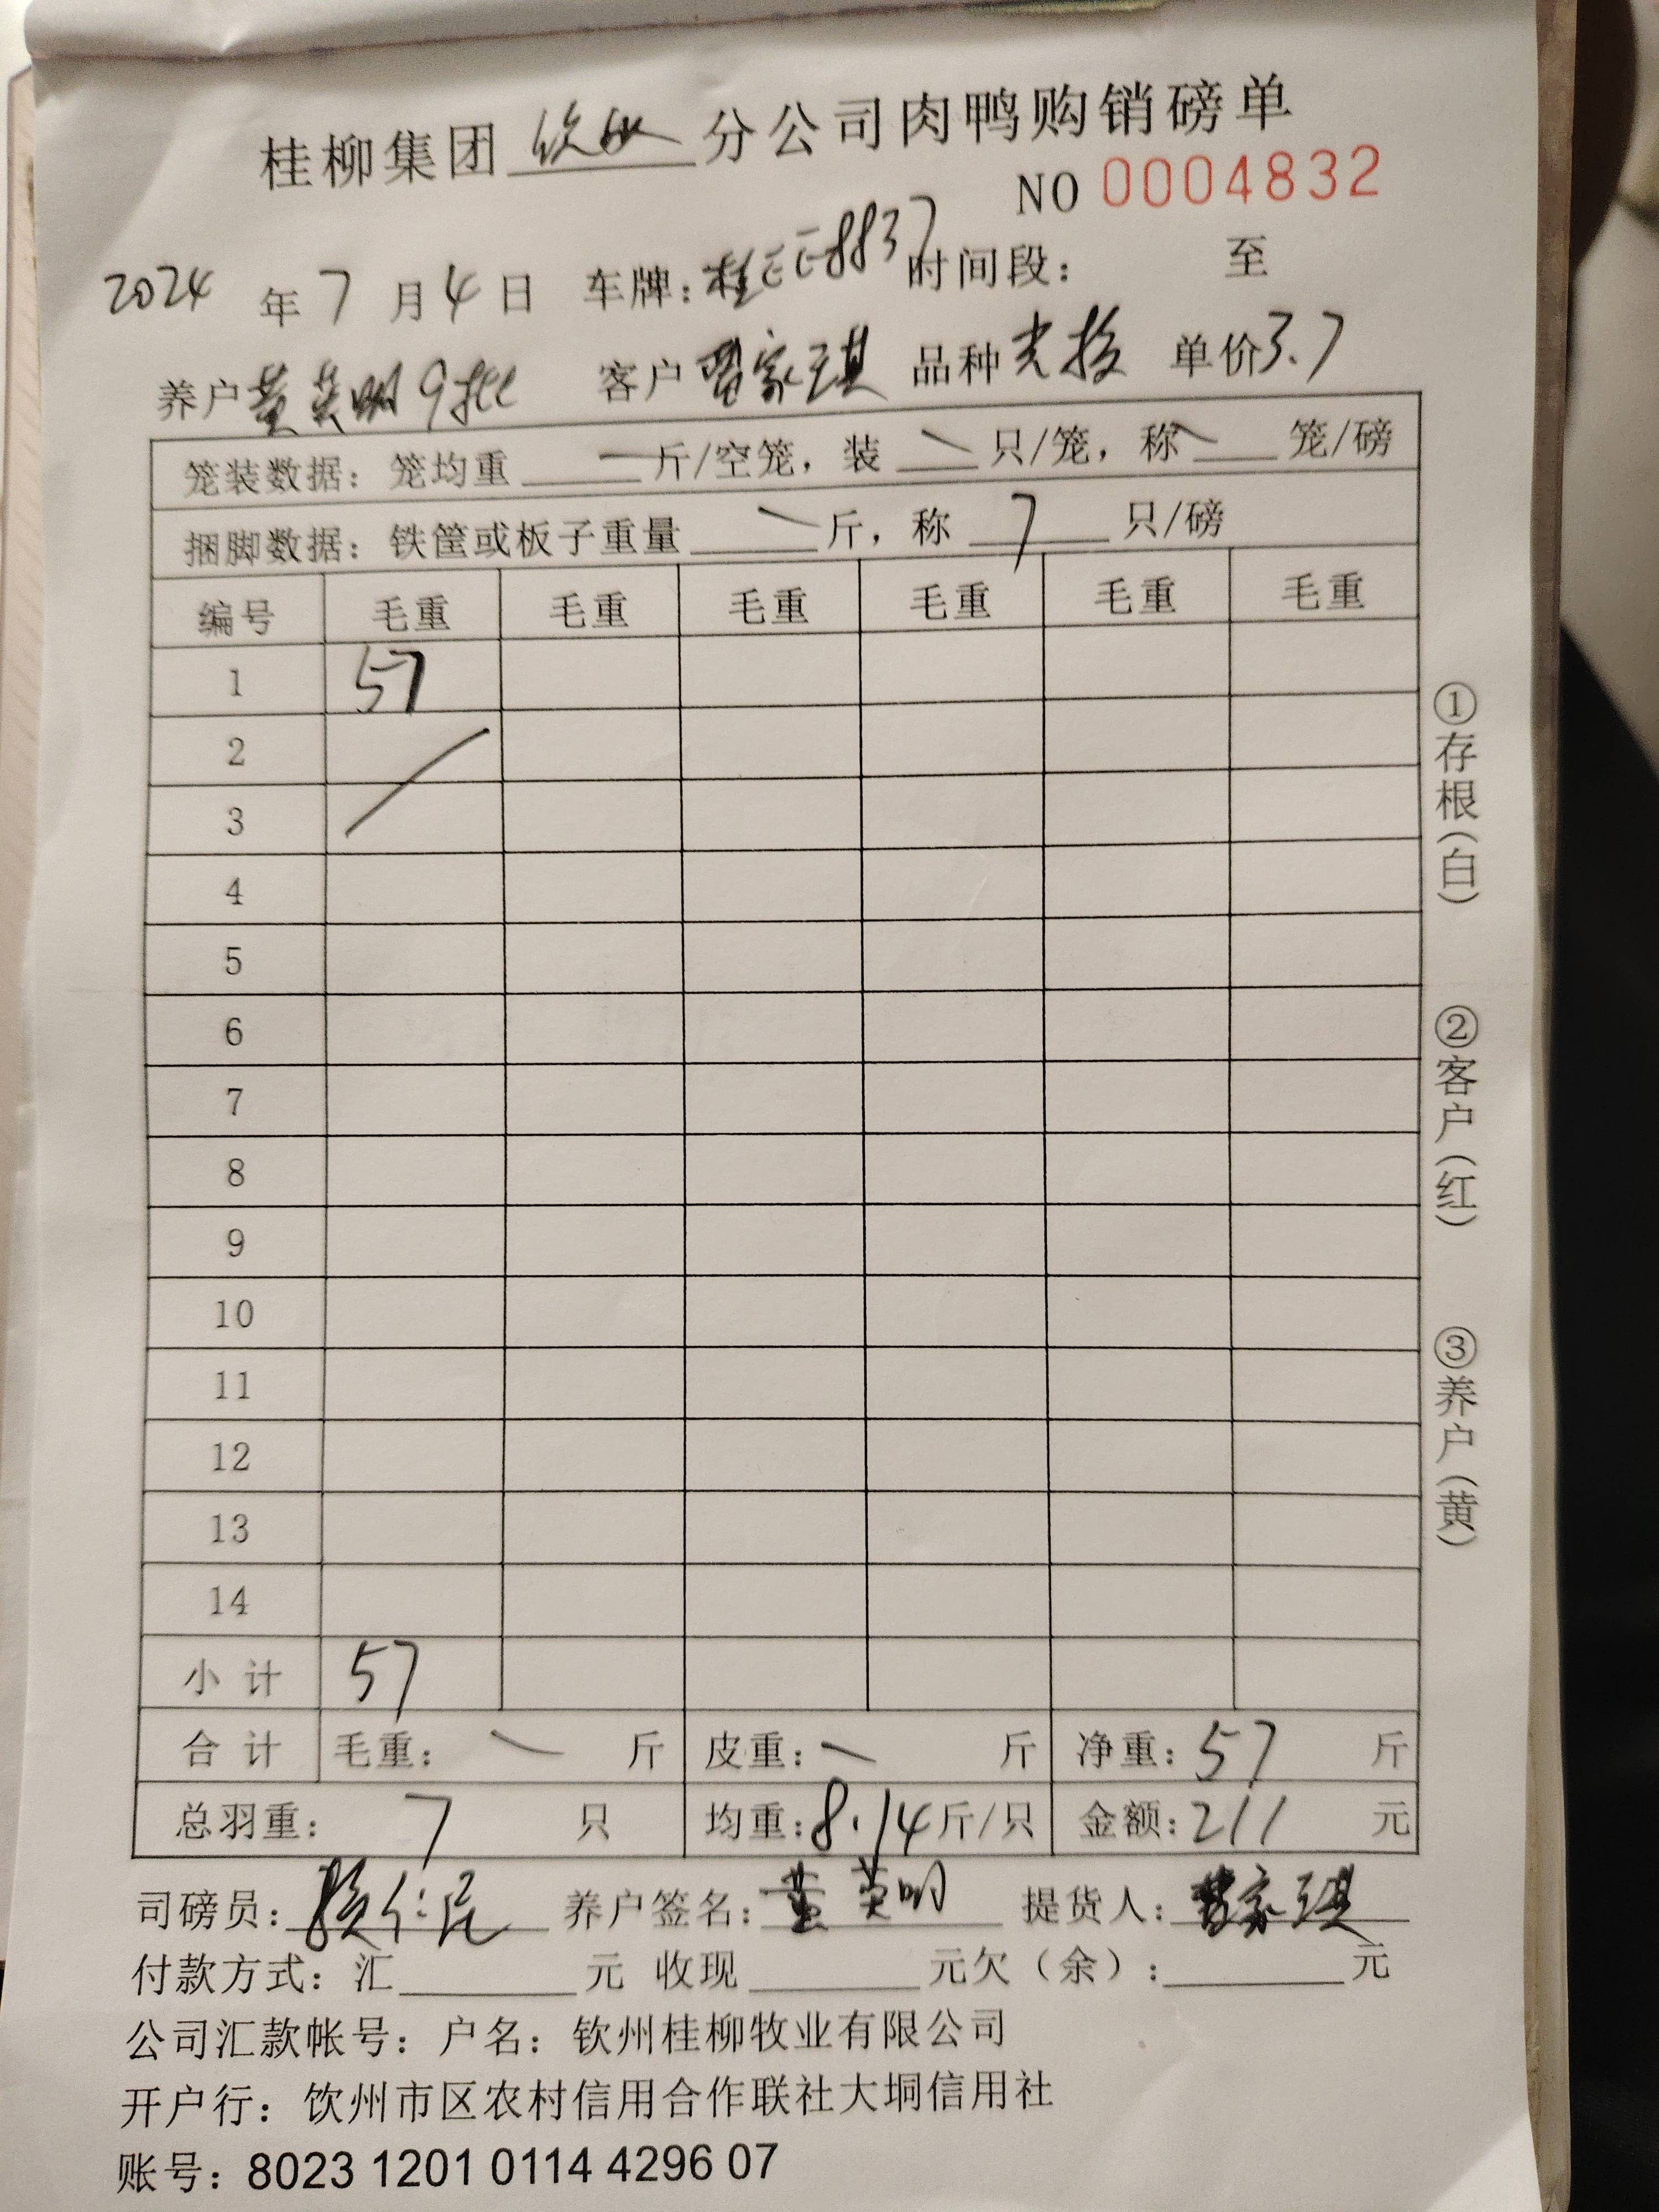 桂柳集团 钦州 分公司肉鸭购销磅单
NO 0004832
2024 年 7 月 4 日 车牌: 桂EE8837 时间段: 至
养户 黄英明9批 客户 曾家琪 品种 单价 3.7
笼装数据: 笼均重 一 斤/空笼, 装 一 只/笼, 称 一 笼/磅
捆脚数据: 铁筐或板子重量 一 斤, 称 7 只/磅
编号 毛重 毛重 毛重 毛重 毛重 毛重
1 57
2
3
4
5
6
7
8
9
10
11
12
13
14
小 计 57
合 计 毛重: 一 斤 皮重: 一 斤 净重: 57 斤
总羽重: 7 只 均重: 8.14 斤/只 金额: 211 元
司磅员: 养户签名: 黄英明 提货人: 曾家琪
付款方式: 汇 元 收现 元欠(余): 元
公司汇款帐号: 户名: 钦州桂柳牧业有限公司
开户行: 钦州市区农村信用合作联社大垌信用社
账号: 8023 1201 0114 4296 07
①存根(白)
②客户(红)
③养户(黄)